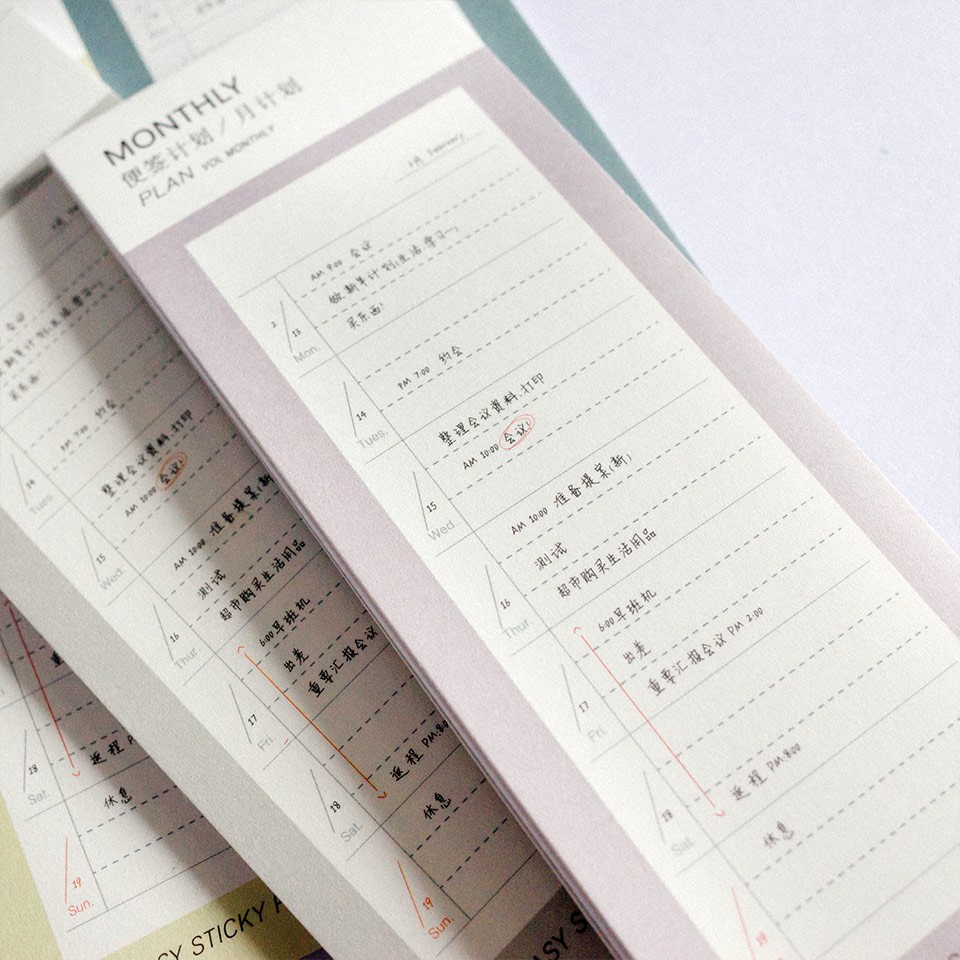 MONTHLY
便签计划 / 月计划
PLAN VOL MONTHLY
2月 February
AM 9:00 会议
做新年计划:生活.学习…
2/13
买东西!
Mon.
PM 7:00 约会
14
Tues.
整理会议资料.打印
AM 10:00 会议!
15
Wed.
AM 10:00 准备提案(新)
测试
16
超市购买生活用品
Thur.
6:00早班机
出差
17
重要汇报会议 PM 2:00
Fri.
18
返程 PM:8:00
Sat.
休息
19
约会
PM 7:00
14
Tues.
整理会议资料.打印
AM 10:00 会议!
15
Wed.
AM 10:00 准备提案(新
测试
16
超市购买生活用品
Thur.
6:00早班机
出差
17
重要汇报会议
Fri.
18
返程 PM:8:0
Sat.
休息
19
Sun.
18
返程 P
Sat.
休息
19
Sun.
SY STICKY
ASY S